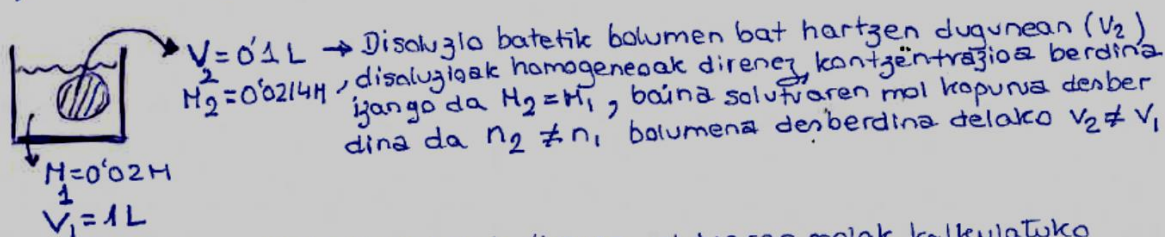 V₂ = 0'1 L → Disoluzio batetik bolumen bat hartzen dugunean (V₂)
M₂ = 0'0214M, disoluzioak homogeneoak direnez, kontzentrazioa berdina
izango da M₂ = M₁, baina solutuaren mol kopurua desber
dina da n₂ ≠ n₁ bolumena desberdina delako V₂ ≠ V₁
M₁ = 0'02M
V₁ = 1L
molak kalkulatuko